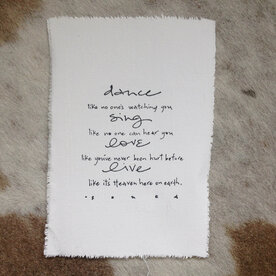 dance
like no one's watching you
sing
like no one can hear you
love
like you've never been hurt before
live
like it's Heaven here on earth.